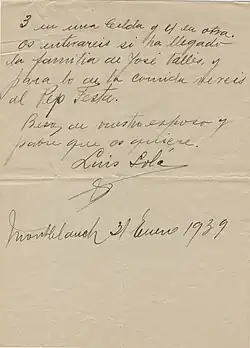 3 en una Celda y el en otra.
Os enterareis si ha llegado
la familia de José Valles, y
para lo de la comida vereis
al Pep Testa.
Besos de vuestro esposo y
padre que os quiere.
Luis Solá
Montblanch 21 Enero 1939